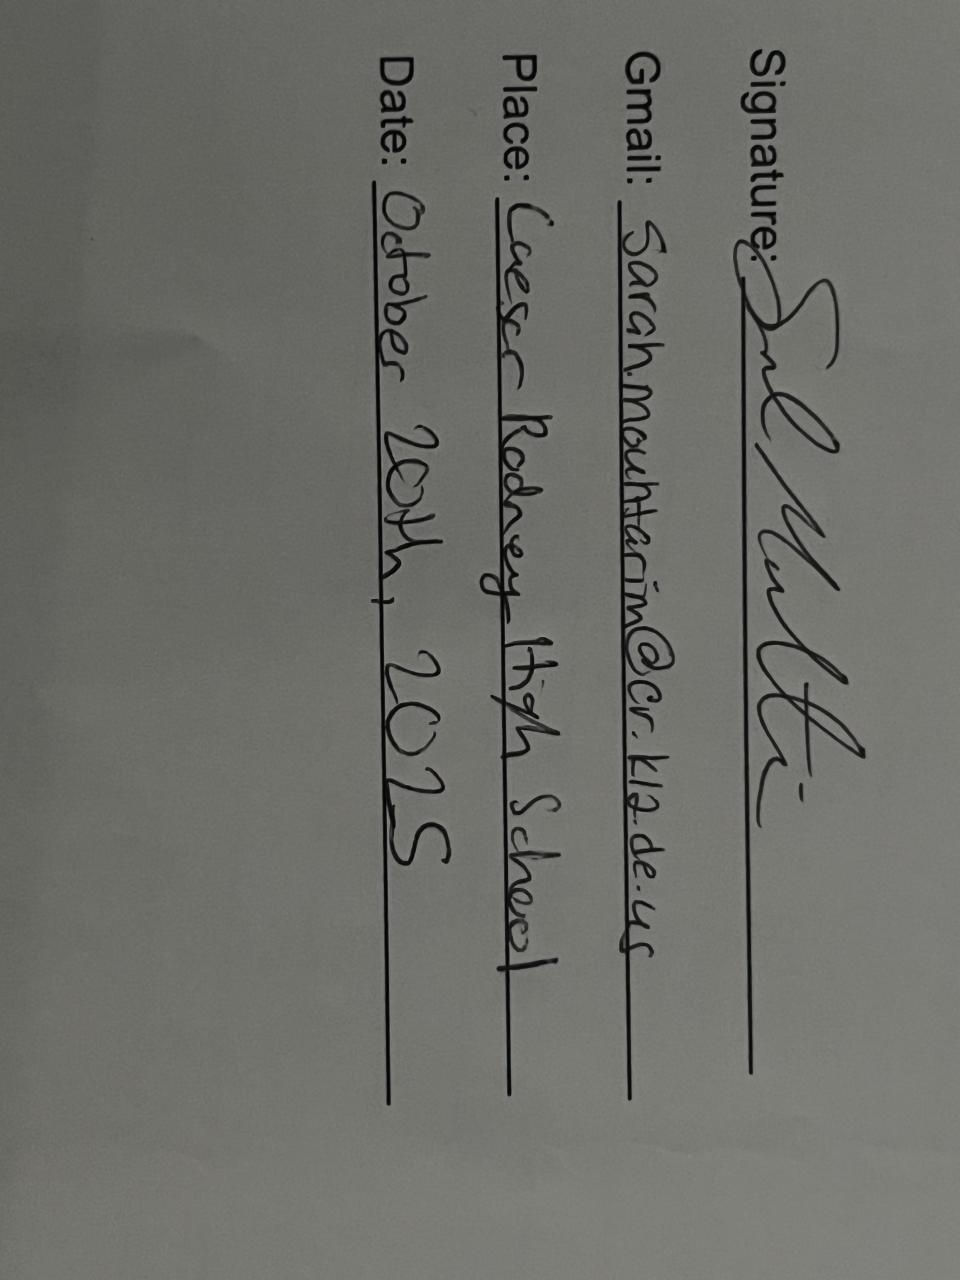 Signature:
Gmail: Sarah.mouhtarim@cr.k12.de.us
Place: Caesar Rodney High School
Date: October 20th, 2025